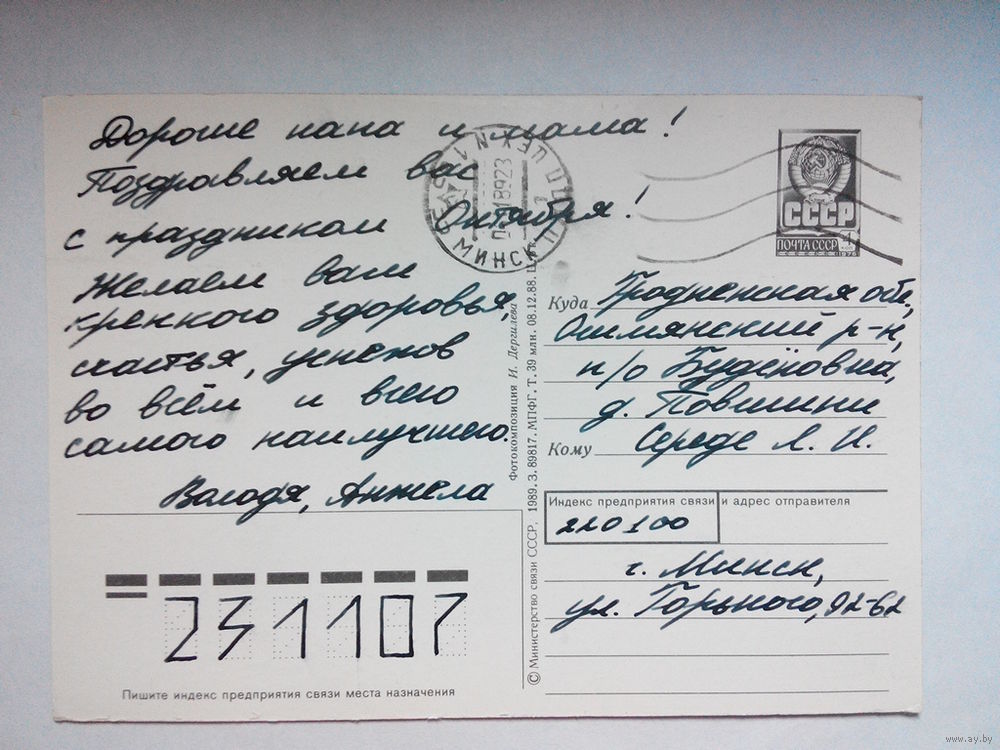 Дорогие папа и мама!
Поздравляем вас
с праздником Октября!
Желаем вам
крепкого здоровья,
счастья, успехов
во всём и всего
самого наилучшего.
Володя, Анжела
231107
Пишите индекс предприятия связи места назначения
Фотокомпозиция И. Дергилева
© Министерство связи СССР, 1989. З. 89817. МПФГ. Т. 39 млн. 08.12.88.
МИНСК
СССР
ПОЧТА СССР
1976
Куда Гродненская обл,
Ошмянский р-н,
п/о Будёновка,
Кому Середе Л. И.
Индекс предприятия связи и адрес отправителя
220100
г. Минск,
ул. Горького, 92-62
www.ay.by